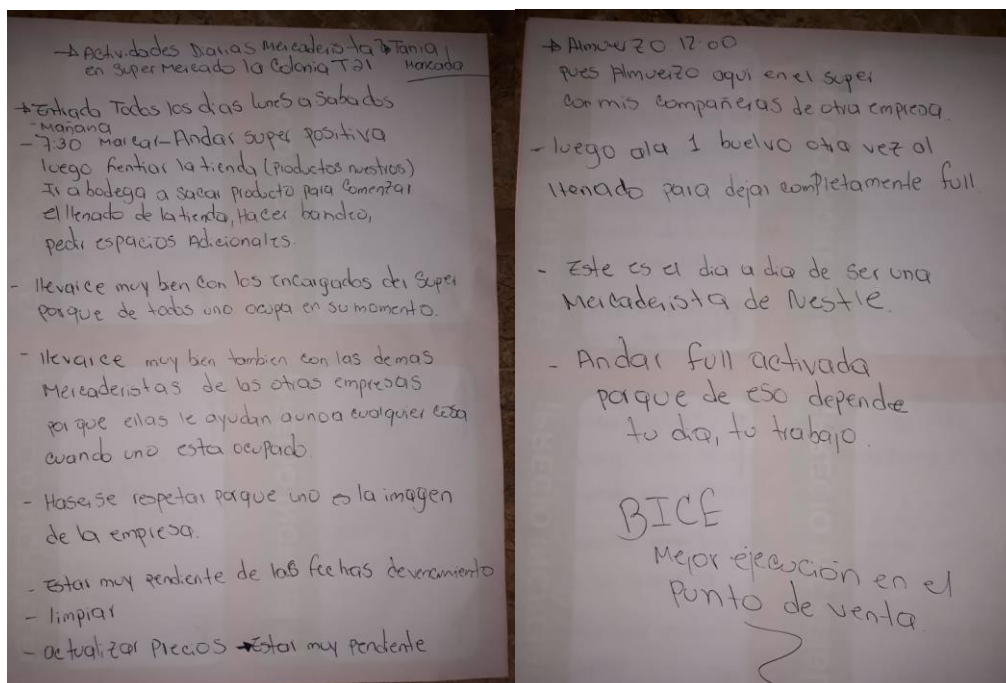 → Actividades Diarias Mercaderista → Tania
en Super Mercado la Colonia T21 Moncada
→ Entrada Todos los dias lunes a Sabados
- Mañana
- 7:30 Marcar - Andar super positiva
luego frentiar la tienda (productos nuestros)
Ir a bodega a sacar producto para Comenzar
el llenado de la tienda, Hacer bandeo,
pedir espacios Adicionales.
- llevarce muy bien con los Encargados del Super
porque de todos uno ocupa en su momento.
- llevarce muy bien tambien con las demas
Mercaderistas de las otras empresas
por que ellas le ayudan aunoa cualquier cosa
cuando uno esta ocupado.
- Haserse respetar porque uno es la imagen
de la empresa.
- Estar muy pendiente de las fechas de vencimiento
- limpiar
- actualizar Precios → Estar muy pendente
→ Almuerzo 12:00
pues Almuerzo aqui en el super
con mis compañeras de otra empresa.
- luego ala 1 buelvo otra vez al
llenado para dejar completamente full.
- Este es el dia a dia de ser una
Mercaderista de Nestle.
- Andar full activada
porque de eso depende
tu dia, tu trabajo.
BICE
Mejor ejecución en el
Punto de venta.